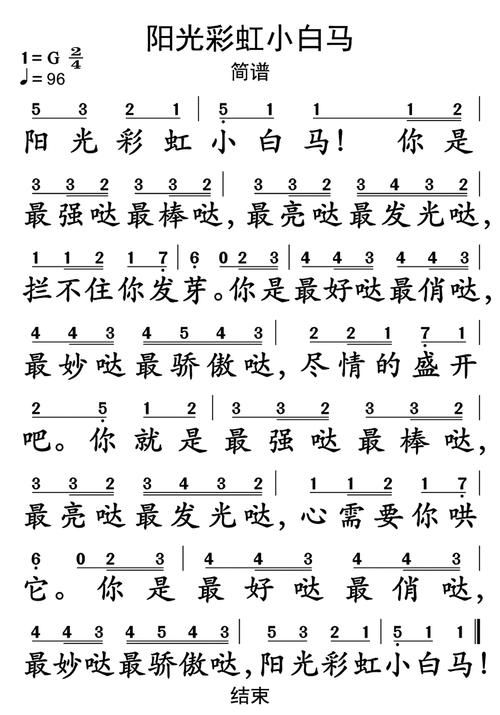 阳光彩虹小白马
1=G 2/4
♩=96
简谱
5 3 2 1 | 5̣ 1 1 1 2
阳光彩虹小白马! 你是
3 3 2 3 3 2 | 3 3 2 3 4 3 2 |
最强哒最棒哒,最亮哒最发光哒,
1 1 2 1 7̣ | 6̣ 0 2 3 | 4 4 3 4 4 3 |
拦不住你发芽。你是最好哒最俏哒,
4 4 3 4 5 4 3 | 2 2 1 7̣ 1 |
最妙哒最骄傲哒,尽情的盛开
2 5̣ 1 2 | 3 3 2 3 3 2 |
吧。你就是最强哒最棒哒,
3 3 2 3 4 3 2 | 1 1 2 1 7̣ |
最亮哒最发光哒,心需要你哄
6̣ 0 2 3 | 4 4 3 4 4 3 |
它。你是最好哒最俏哒,
4 4 3 4 5 4 3 | 5 3 2 1 | 5̣ 1 1 ‖
最妙哒最骄傲哒,阳光彩虹小白马!
结束